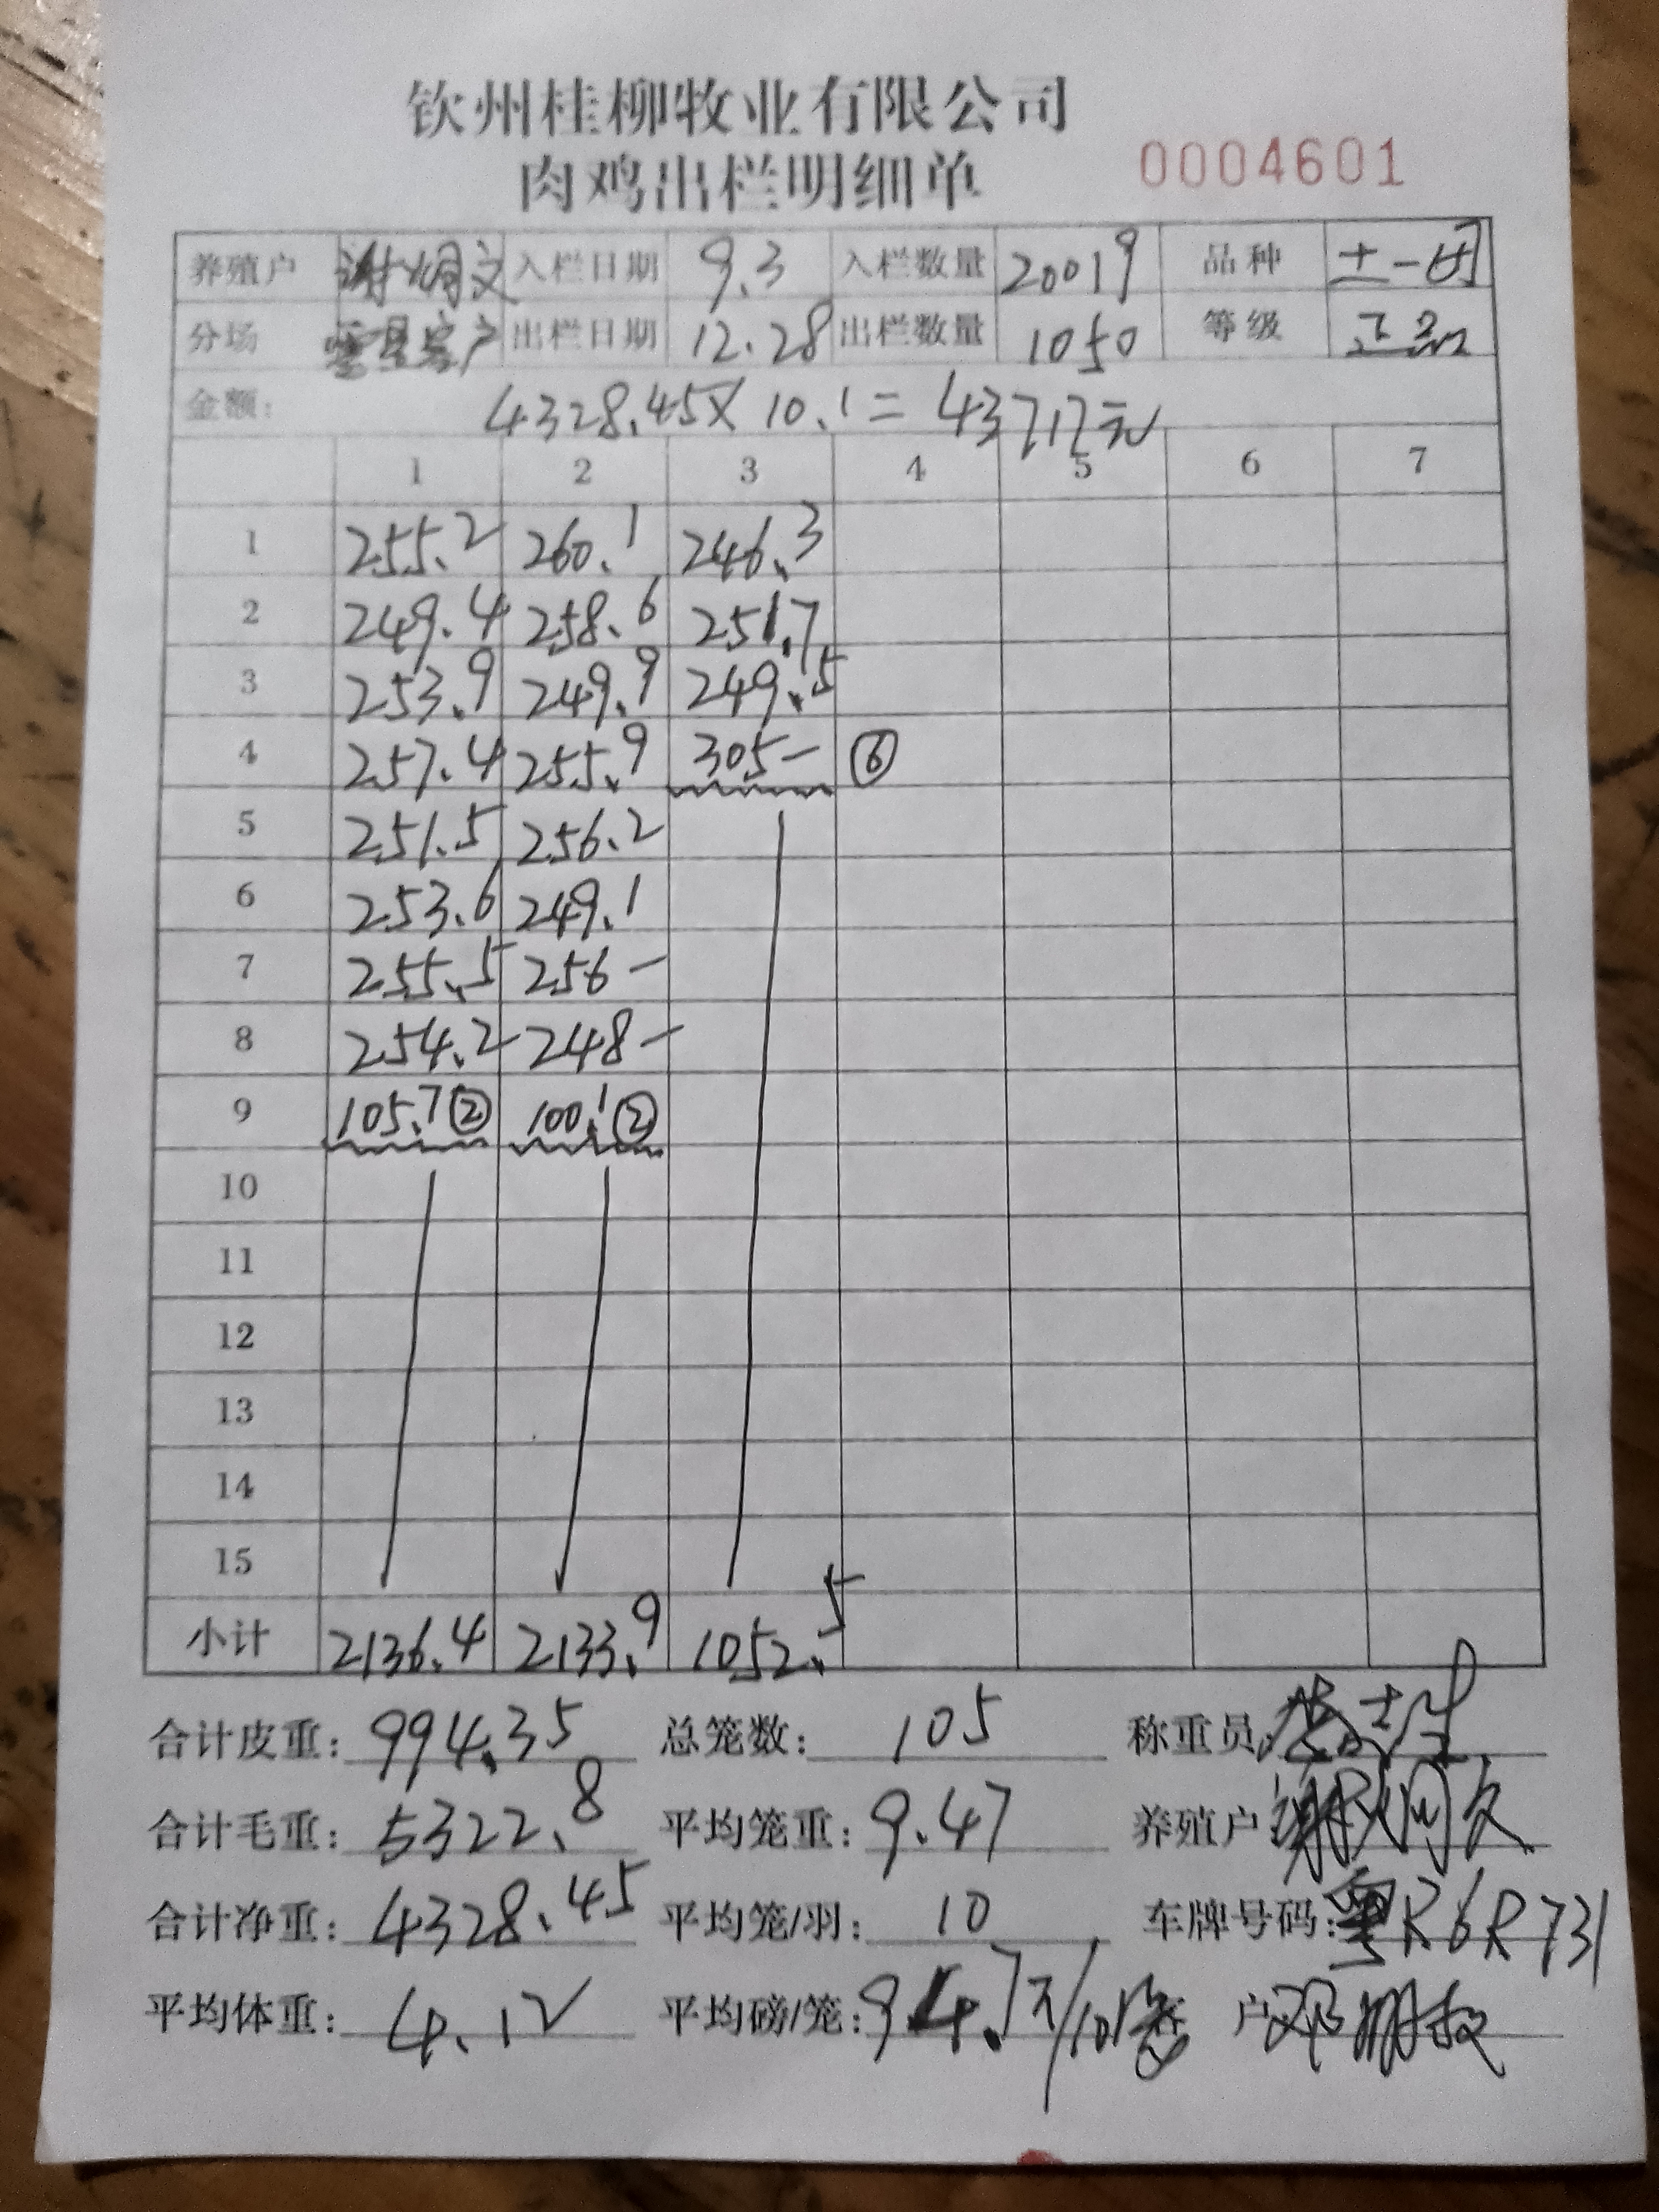 钦州桂柳牧业有限公司
肉鸡出栏明细单 0004601
养殖户 谢炯文 入栏日期 9.3 入栏数量 20019 品种 土一
分场 零星客户 出栏日期 12.28 出栏数量 1050 等级 正品
金额: 4328.45×10.1=43717元
1 2 3 4 5 6 7
1 255.2 260.1 246.3
2 249.4 258.6 251.7
3 253.9 249.9 249.5
4 257.4 255.9 305- ⑥
5 251.5 256.2
6 253.6 249.1
7 255.5 256-
8 254.2 248-
9 105.7② 100.1②
10
11
12
13
14
15
小计 2136.4 2133.9 1052.5
合计皮重: 994.35 总笼数: 105 称重员:
合计毛重: 5322.8 平均笼重: 9.47 养殖户 谢炯文
合计净重: 4328.45 平均笼/羽: 10 车牌号码: 粤R6R731
平均体重: 4.12 平均磅/笼: 94.7斤/10笼 户